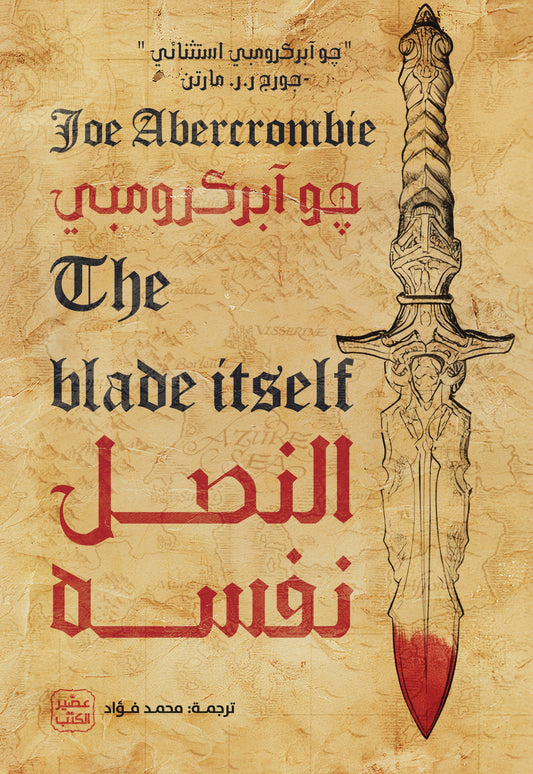 "چو آبركرومبي استثنائي"
-جورج ر.ر. مارتن
Joe Abercrombie
چو آبركرومبي
The
blade itself
النصل
نفسه
ترجمة: محمد فؤاد
عصير
الكتب
VISSERINE
AZURE
SEA